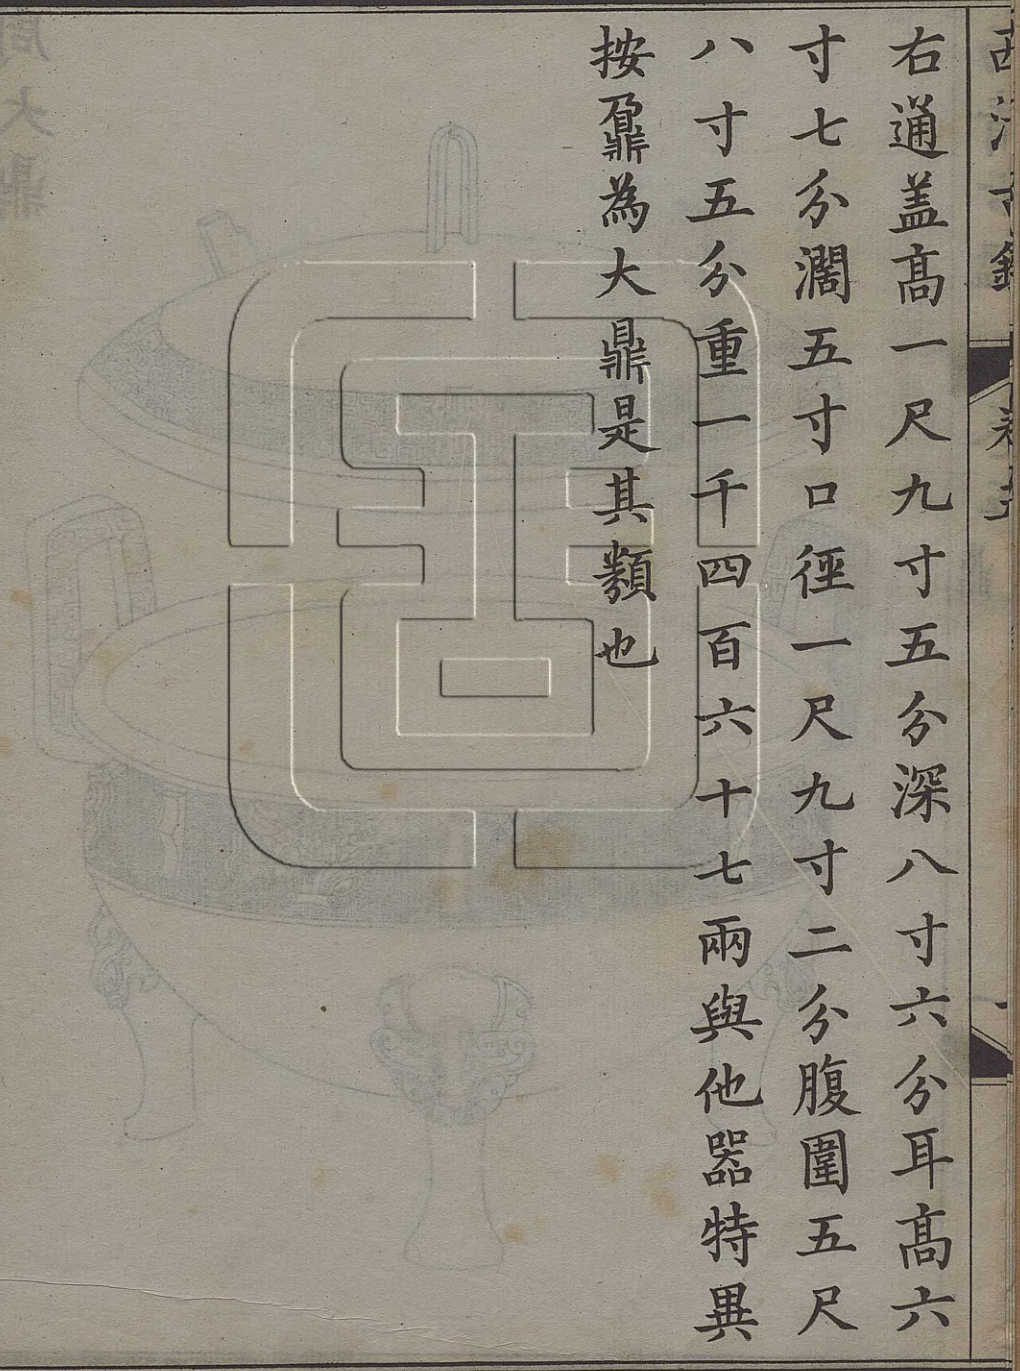 右通盖髙一尺九寸五分深八寸六分耳髙六
寸七分濶五寸口徑一尺九寸二分腹圍五尺
八寸五分重一千四百六十七兩與他器特異
按鼐為大鼎是其類也